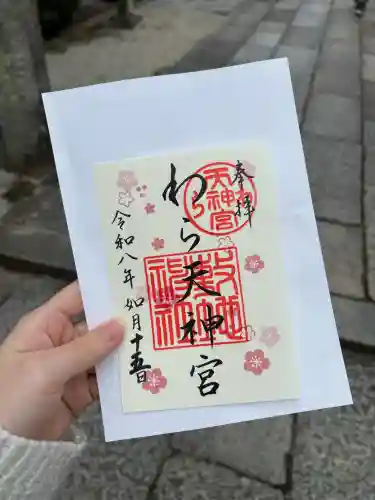 奉拝
わら天神宮
令和八年 如月十五日
わら天神宮
敷地神社